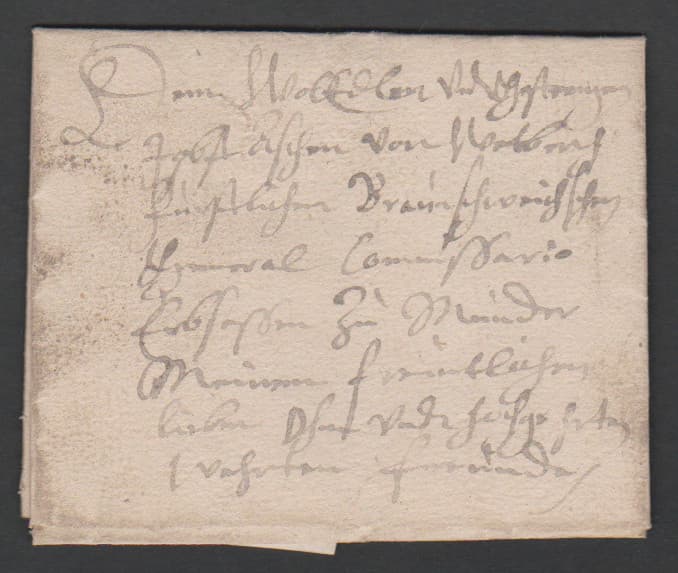 Dem WollEdlen Vnd Gestrengen
Jobst Aschen von
fürstlichen Braunschweichschen
General Commissario
Erbsessen Zu Münder
Meinem freuntlichen
lieben Ohm vndt hochgeehrten
wehrten freunde